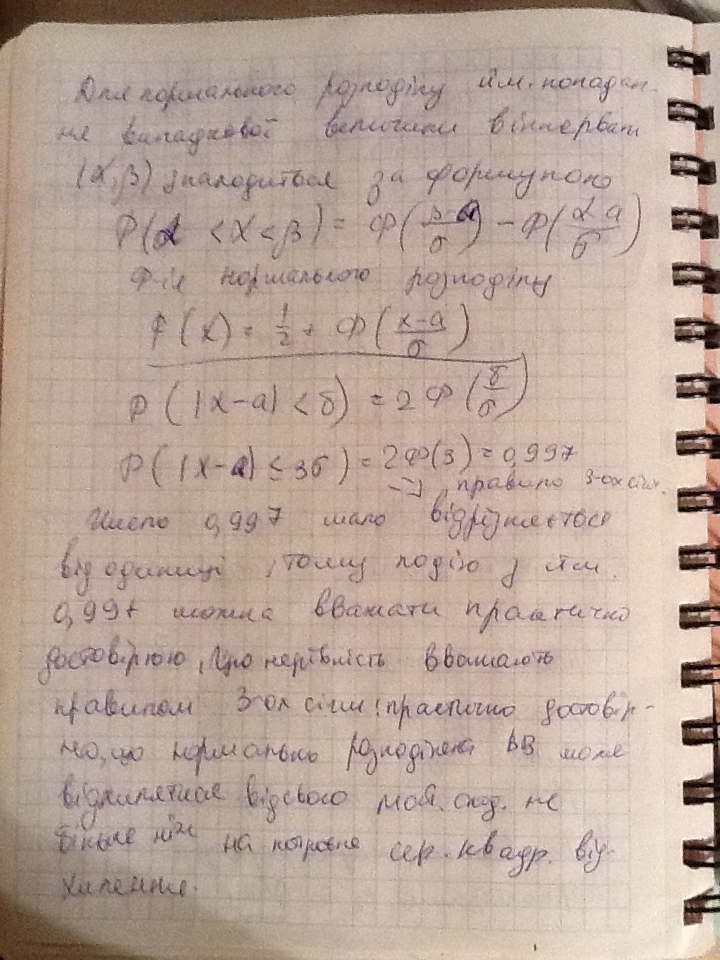 Для нормального розподілу йм. попадан-
не випадкової величини в інтервал
(α, β) знаходиться за формулою
P(α < X < β) = Φ(β-a/σ) - Φ(α-a/σ)
Ф-ія нормального розподілу
F(x) = 1/2 + Φ(x-a/σ)
P(|X-a| < δ) = 2Φ(δ/σ)
P(|X-a| ≤ 3σ) = 2Φ(3) = 0,997
=> правило 3-ох сігм
Число 0,997 мало відрізняється
від одиниці, тому подію з йм.
0,997 можна вважати практично
достовірною
правилом 3-ох сігм: практично достовір-
но, що нормально розподілена ВВ може
відхилятися від свого мат. спод. не
більше ніж на потрійне сер. квадр. від-
хилення.